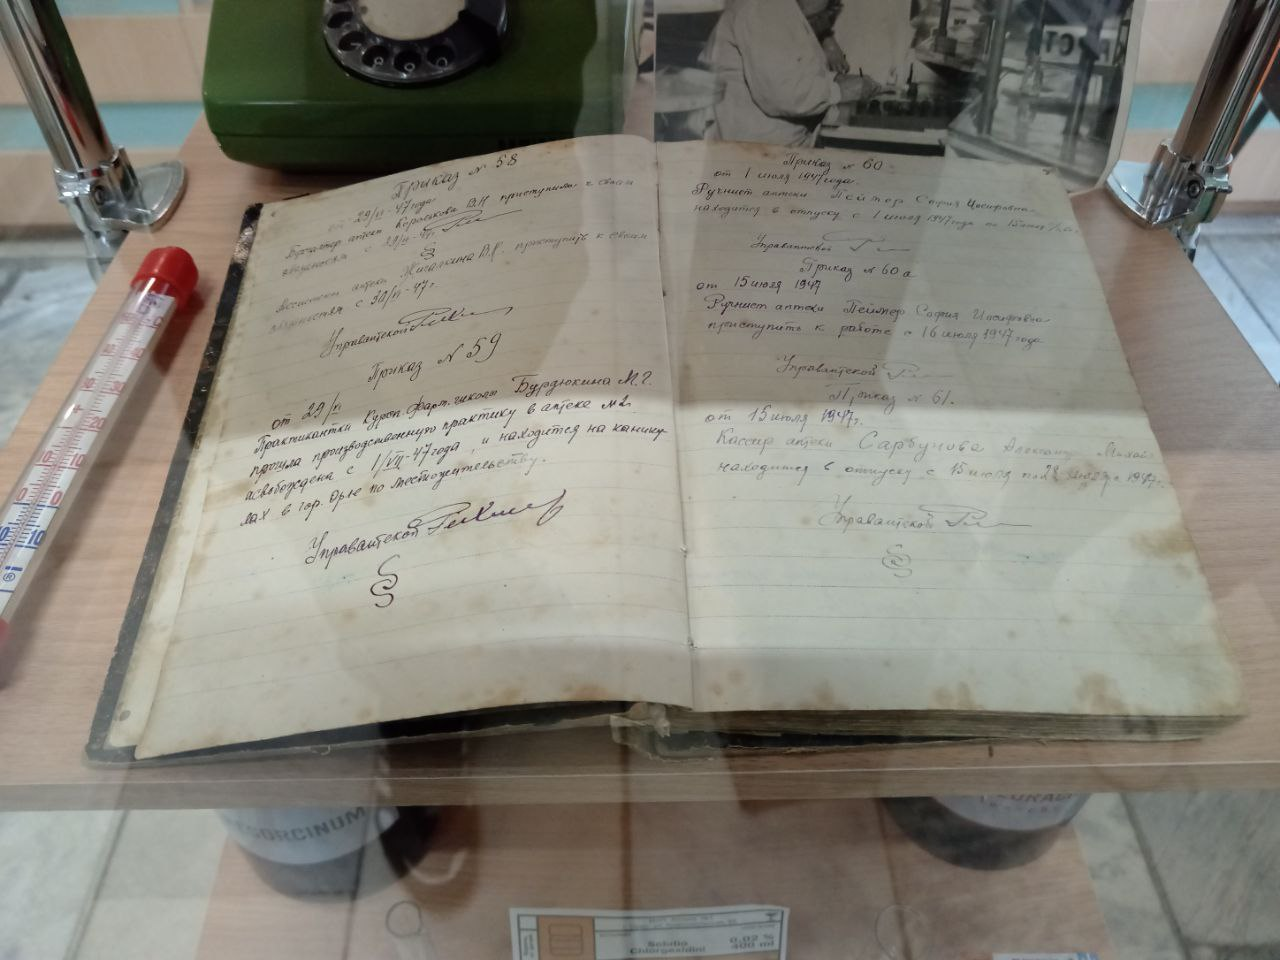 Приказ № 58
от 29/VI-47года
Бухгалтер аптеки В.Н приступила к своим
с 29/VI-47г.
§
Ассистент аптеки Жигалкина В. приступить к своим
с 30/VI-47г.
Управаптекой
Приказ № 59
от 29/VI
Практикантки Курск. фарм. школы Бурдюкина М.Г.
прошла производственную практику в аптеке №2.
асвобождена с 1/VII-47года, и находится на канику-
лах в гор. Орле по местожительству.
Управаптекой
§
Приказ № 60
от 1 июля 1947года.
Ручнист аптеки Пеймер София Иосифовна
находится в отпуску с 1 июля 1947года по 15 июля
Управаптекой
Приказ № 60а
от 15 июля 1947
Ручнист аптеки Пеймер София Иосифовна
приступить к работе с 16 июля 1947года
Управаптекой
Приказ № 61.
от 15 июля 1947г.
Кассир аптеки Сарбунова
находится в отпуску с 15 июля по 28 1947г.
Управаптекой
§
ESORCINUM
Solutio
Chlorgexidini
0.02 %
400 ml